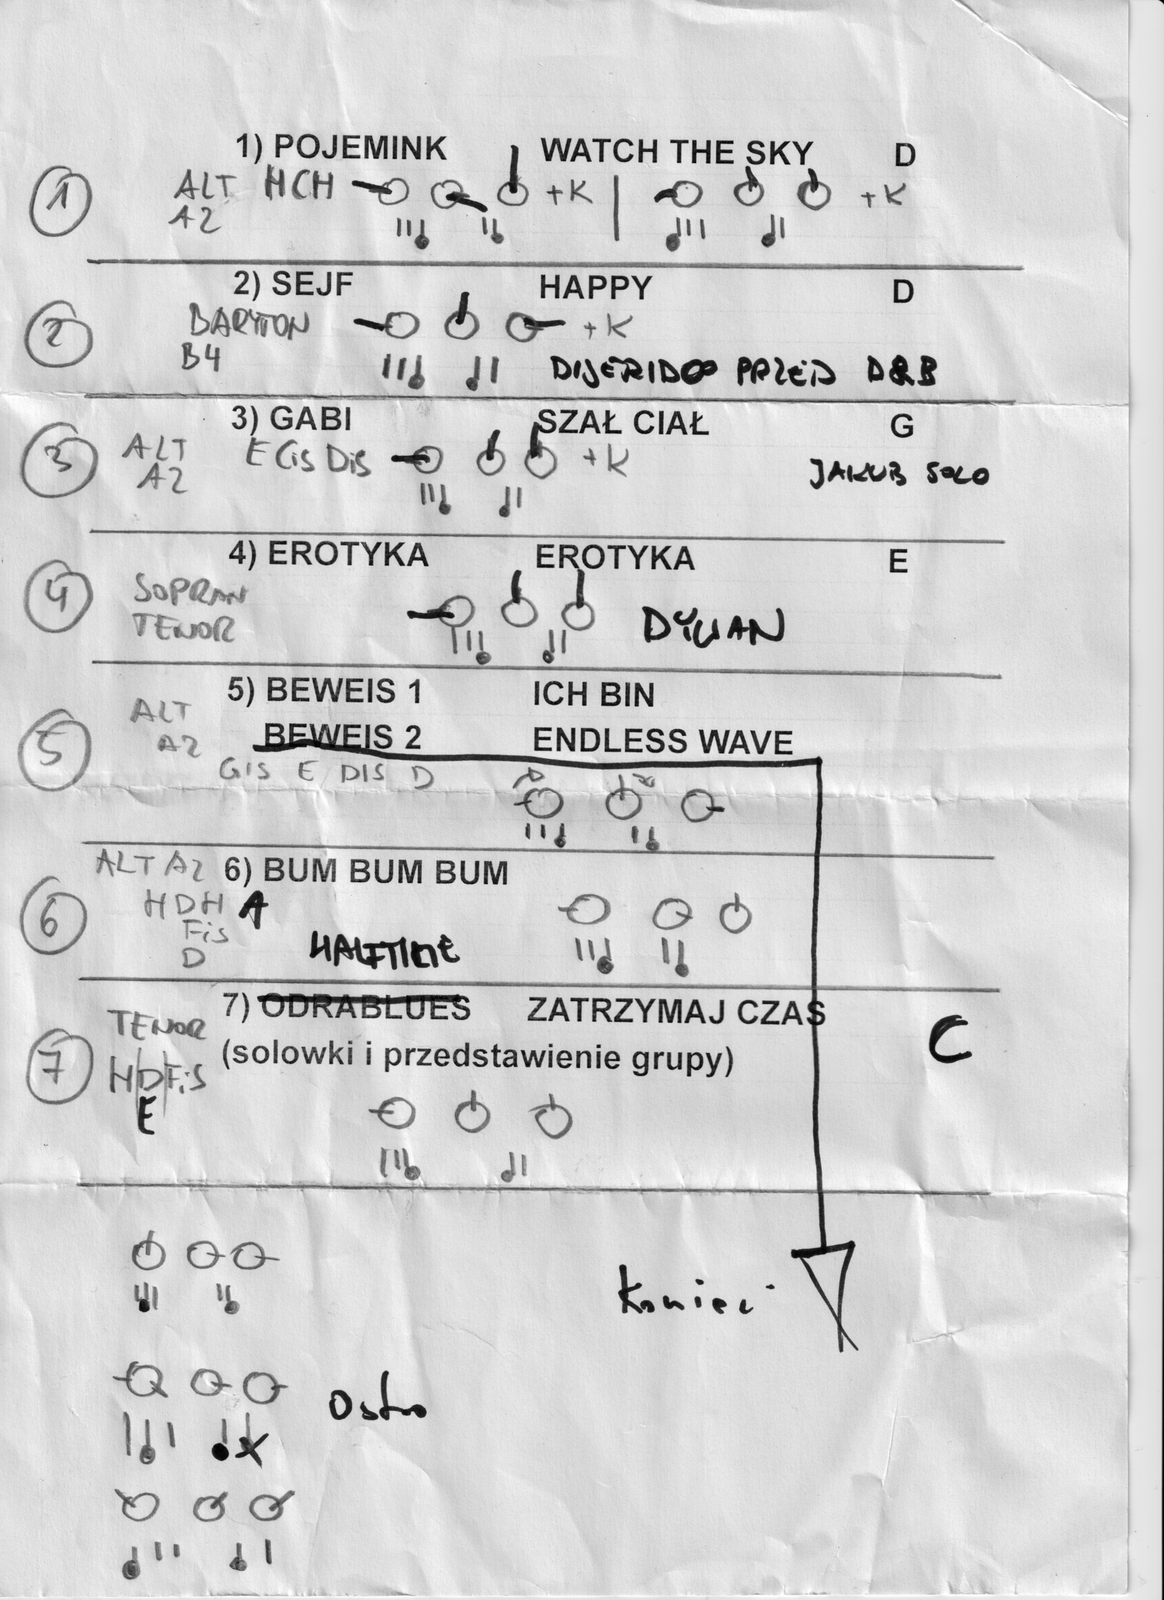 1) POJEMINK WATCH THE SKY D
1 ALT HCH +K +K
A2
2) SEJF HAPPY D
2 BARYTON +K
B4 DIJERIDOO PRZED D&B
3) GABI SZAŁ CIAŁ G
3 ALT E Cis Dis +K JAKUB SOLO
A2
4) EROTYKA EROTYKA E
4 SOPRAN
TENOR DYLIAN
5) BEWEIS 1 ICH BIN
ALT
5 A2 BEWEIS 2 ENDLESS WAVE
GIS E DIS D
ALT A2 6) BUM BUM BUM
6 HDH A
Fis
D HALFTIME
7) ODRABLUES ZATRZYMAJ CZAS C
TENOR
7 (solowki i przedstawienie grupy)
HDFiS
E
Koniec
Ostro